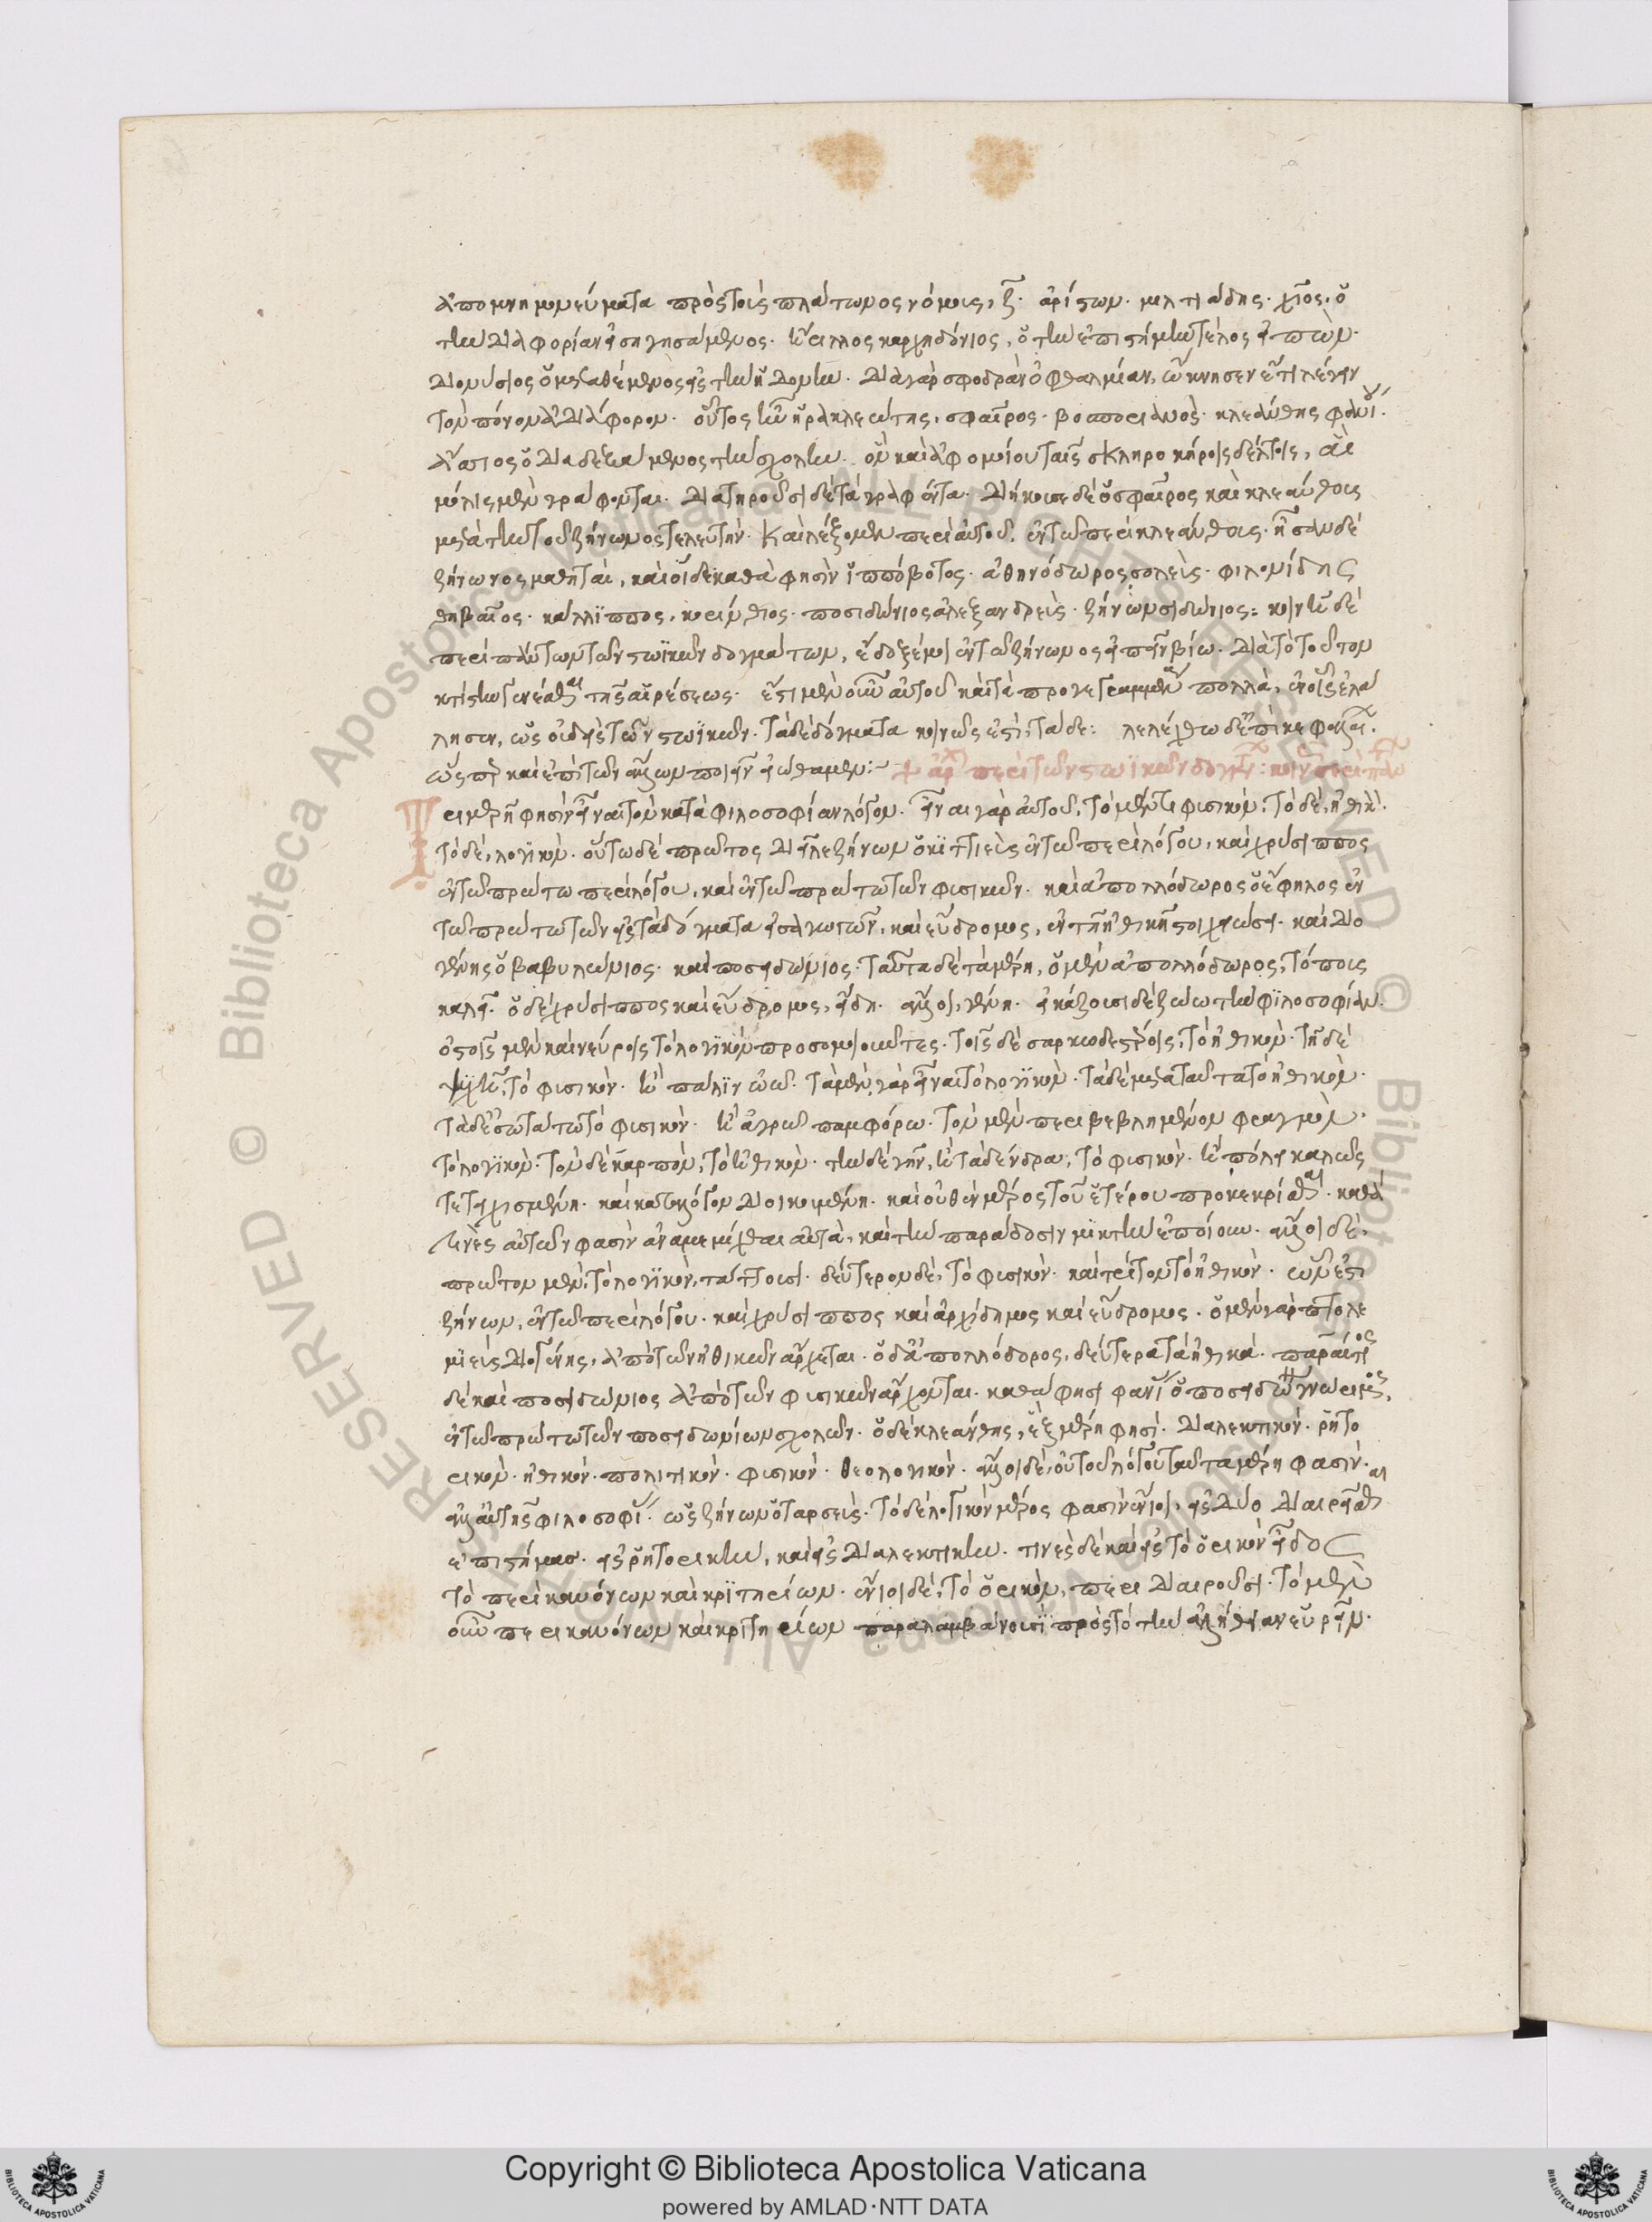 ἀπομνημονεύματα πρὸς τοῖς πλάτωνος νόμοις, ζ. ἀρίστων. μιλτιάδης. χῖος. ὁ
τὴν διαφορίαν εἰσηγησάμενος. ἤριλλος καρχηδόνιος, ὁ τὴν ἐπιστήμην τέλος εἰπὼν.
διονύσιος ὁ μεταθέμενος εἰς τὴν ἡδονὴν. διὰ γὰρ σφοδρὰν ὀφθαλμίαν, ὤκνησεν ἔτι λέγειν
τὸν πόνον ἀδιάφορον. οὗτος ἦν ἡρακλεώτης, σφαῖρος. βοσποριανὸς. κλεάνθης φανίου.
ἄσσιος ὁ διαδεξάμενος τὴν σχολὴν. ὃν καὶ ἀφομοίου ταῖς σκληροκήροις δέλτοις, αἳ
μόλις μὲν γράφονται. διατηροῦσι δὲ τὰ γραφέντα. διήκουσε δὲ ὁ σφαῖρος καὶ κλεάνθους
μετὰ τὴν τοῦ ζήνωνος τελευτήν. καὶ λέξομεν περὶ αὐτοῦ, ἐν τῷ περὶ κλεάνθους. ἦσαν δὲ
ζήνωνος μαθηταὶ, καὶ οἵδε καθά φησὶν ἱππόβοτος. ἀθηνόδωρος σολεὺς. φιλωνίδης
θηβαῖος. κάλλιππος, κορίνθιος. ποσιδώνιος ἀλεξανδρεὺς. ζήνων σιδώνιος: κοινῇ δὲ
περὶ πάντων τῶν στωϊκῶν δογμάτων, ἔδοξέ μοι ἐν τῷ ζήνωνος εἰπεῖν βίω. διὰ τὸ τοῦτον
κτίστην γενέσθαι τῆς αἱρέσεως. ἔστι μὲν οὖν αὐτοῦ καὶ τὰ προγεγραμμένα πολλὰ, ἐν οἷς ἐλά
λησεν, ὡς οὐδεὶς τῶν στωϊκῶν. τὰ δὲ δόγματα κοινῶς ἐστὶ, τάδε: λελέχθω δ' ἐπὶ κεφαλαί.
ὥσπερ καὶ ἐπὶ τῶν ἄλλων ποιεῖν εἰώθαμεν:~ περὶ τῶν στωϊκῶν δογμάτων:
Τριμερῆ φησὶν εἶναι τὸν κατὰ φιλοσοφίαν λόγον. εἶναι γὰρ αὐτοῦ, τὸ μέν τι φυσικὸν, τὸ δὲ, ἠθικὸ.
τὸ δὲ, λογικὸν. οὕτω δὲ πρῶτος διεῖλε ζήνων ὁ κιττιεὺς ἐν τῷ περὶ λόγου, καὶ χρύσιππος
ἐν τῷ πρώτω περὶ λόγου, καὶ ἐν τῷ πρώτω τῶν φυσικῶν. καὶ ἀπολλόδωρος ὁ ἔφηλος ἐν
τῷ πρώτω τῶν εἰς τὰ δόγματα εἰσαγωγῶν, καὶ εὔδρομος, ἐν τῆ ἠθικῆ στοιχειώσει. καὶ διο
γένης ὁ βαβυλώνιος. καὶ ποσειδώνιος. ταῦτα δὲ τὰ μέρη, ὁ μὲν ἀπολλόδωρος, τόπους
καλεῖ. ὁ δὲ χρύσιππος καὶ εὔδρομος, εἴδη. ἄλλοι, γένη. εἰκάζουσι δὲ ζώω τὴν φιλοσοφίαν.
ὀστοῖς μὲν καὶ νεύροις τὸ λογικὸν προσομοιοῦντες. τοῖς δὲ σαρκωδεστέροις, τὸ ἠθικὸν. τῆ δὲ
ψυχῆ, τὸ φυσικὸν. ἢ πάλιν ὠῶ. τὰ μὲν γὰρ εἶναι τὸ λογικὸν. τὰ δὲ μετὰ ταῦτα τὸ ἠθικὸν.
τὰ δ' ἐσωτάτω τὸ φυσικὸν. ἢ ἀγρῶ παμφόρω. τὸν μὲν περιβεβλημένον φραγμὸν.
τὸ λογικὸν. τὸν δὲ καρπὸν, τὸ ἠθικὸν. τὴν δὲ γῆν, ἢ τὰ δένδρα, τὸ φυσικὸν. ἢ πόλει καλῶς
τετειχισμένη. καὶ κατὰ λόγον διοικουμένη. καὶ οὐθὲν μέρος τοῦ ἑτέρου προκεκρίσθαι. καθά
τινὲς αὐτῶν φασὶν ἀναμεμίχθαι αὐτὰ, καὶ τὴν παράδοσιν μικτὴν ἐποίουν. ἄλλοι δὲ,
πρῶτον μὲν, τὸ λογικὸν, τάττουσι. δεύτερον δὲ, τὸ φυσικὸν. καὶ τρίτον τὸ ἠθικὸν. ὧν ἐστι
ζήνων, ἐν τῷ περὶ λόγου. καὶ χρύσιππος καὶ ἀρχίδημος καὶ εὔδρομος. ὁ μὲν γὰρ πτολε
μιεὺς διογένης, ἀπὸ τῶν ἠθικῶν ἄρχεται. ὁ δ' ἀπολλόδορος, δεύτερα τὰ ἠθικά. παναίτιος
δὲ καὶ ποσειδώνιος ἀπὸ τῶν φυσικῶν ἄρχονται. καθά φησι φανί ὁ ποσειδωνίου γνώριμος,
ἐν τῷ πρώτω τῶν ποσειδωνίων σχολῶν. ὁ δὲ κλεάνθης, ἓξ μέρη φησί. διαλεκτικὸν. ῥητο
ρικὸν. ἠθικὸν. πολιτικὸν. φυσικὸν. θεολογικὸν. ἄλλοι δὲ, οὐ τοῦ λόγου ταῦτα μέρη φασὶν.
ἀλλ' αὐτῆς φιλοσοφί. ὡς ζήνων ὁ ταρσεὺς. τὸ δὲ λογικὸν μέρος φασὶν ἔνιοι, εἰς δύο διαιρεῖσθαι
ἐπιστήμας. εἰς ῥητορικὴν, καὶ εἰς διαλεκτικὴν. τινὲς δὲ καὶ εἰς τὸ ὁρικὸν εἶδος
τὸ περὶ κανόνων καὶ κριτηρίων. ἔνιοι δὲ, τὸ ὁρικὸν, περιδιαιροῦσι. τὸ μὲν
οὖν περὶ κανόνων καὶ κριτηρίων παραλαμβάνουσι πρὸς τὸ τὴν ἀλήθειαν εὑρεῖν.
Copyright © Biblioteca Apostolica Vaticana
powered by AMLAD·NTT DATA